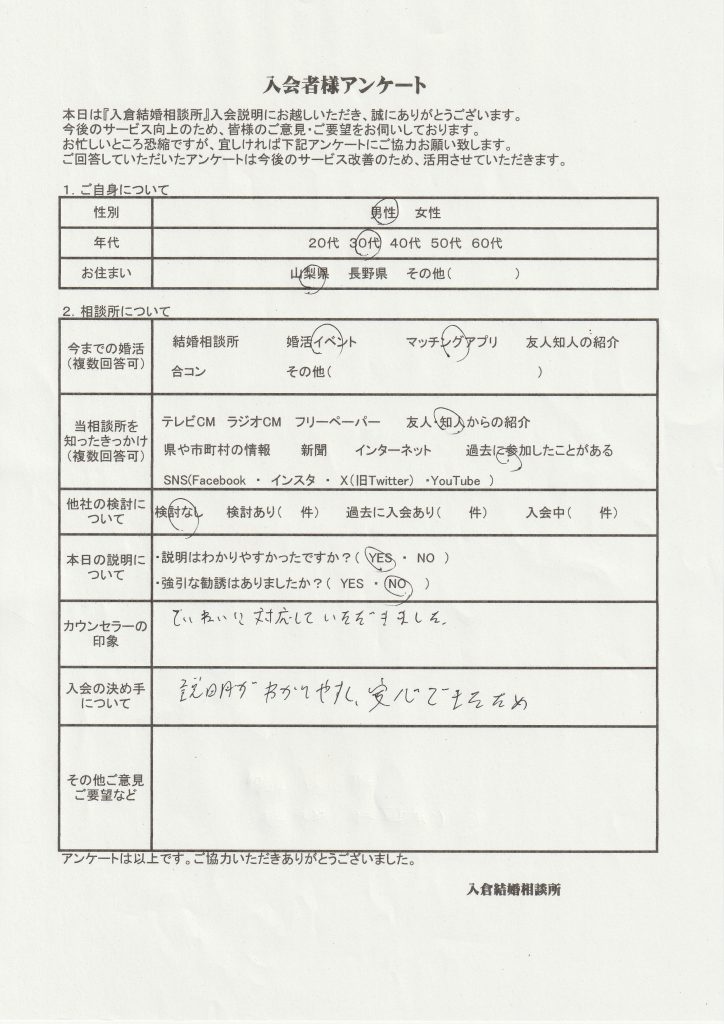 入会者様アンケート
本日は『入倉結婚相談所』入会説明にお越しいただき、誠にありがとうございます。
今後のサービス向上のため、皆様のご意見・ご要望をお伺いしております。
お忙しいところ恐縮ですが、宜しければ下記アンケートにご協力お願い致します。
ご回答していただいたアンケートは今後のサービス改善のため、活用させていただきます。
1．ご自身について
性別 男性 女性
年代 20代 30代 40代 50代 60代
お住まい 山梨県 長野県 その他( )
2．相談所について
今までの婚活
(複数回答可)
結婚相談所 婚活イベント マッチングアプリ 友人知人の紹介
合コン その他( )
当相談所を
知ったきっかけ
(複数回答可)
テレビCM ラジオCM フリーペーパー 友人・知人からの紹介
県や市町村の情報 新聞 インターネット 過去に参加したことがある
SNS(Facebook ・ インスタ ・ X(旧Twitter) ・YouTube )
他社の検討に
ついて
検討なし 検討あり( 件) 過去に入会あり( 件) 入会中( 件)
本日の説明に
ついて
・説明はわかりやすかったですか？( YES ・ NO )
・強引な勧誘はありましたか？( YES ・ NO )
カウンセラーの
印象
ていねいに対応していただきました。
入会の決め手
について
説明がわかりやすく、安心できたため
その他ご意見
ご要望など
アンケートは以上です。ご協力いただきありがとうございました。
入倉結婚相談所